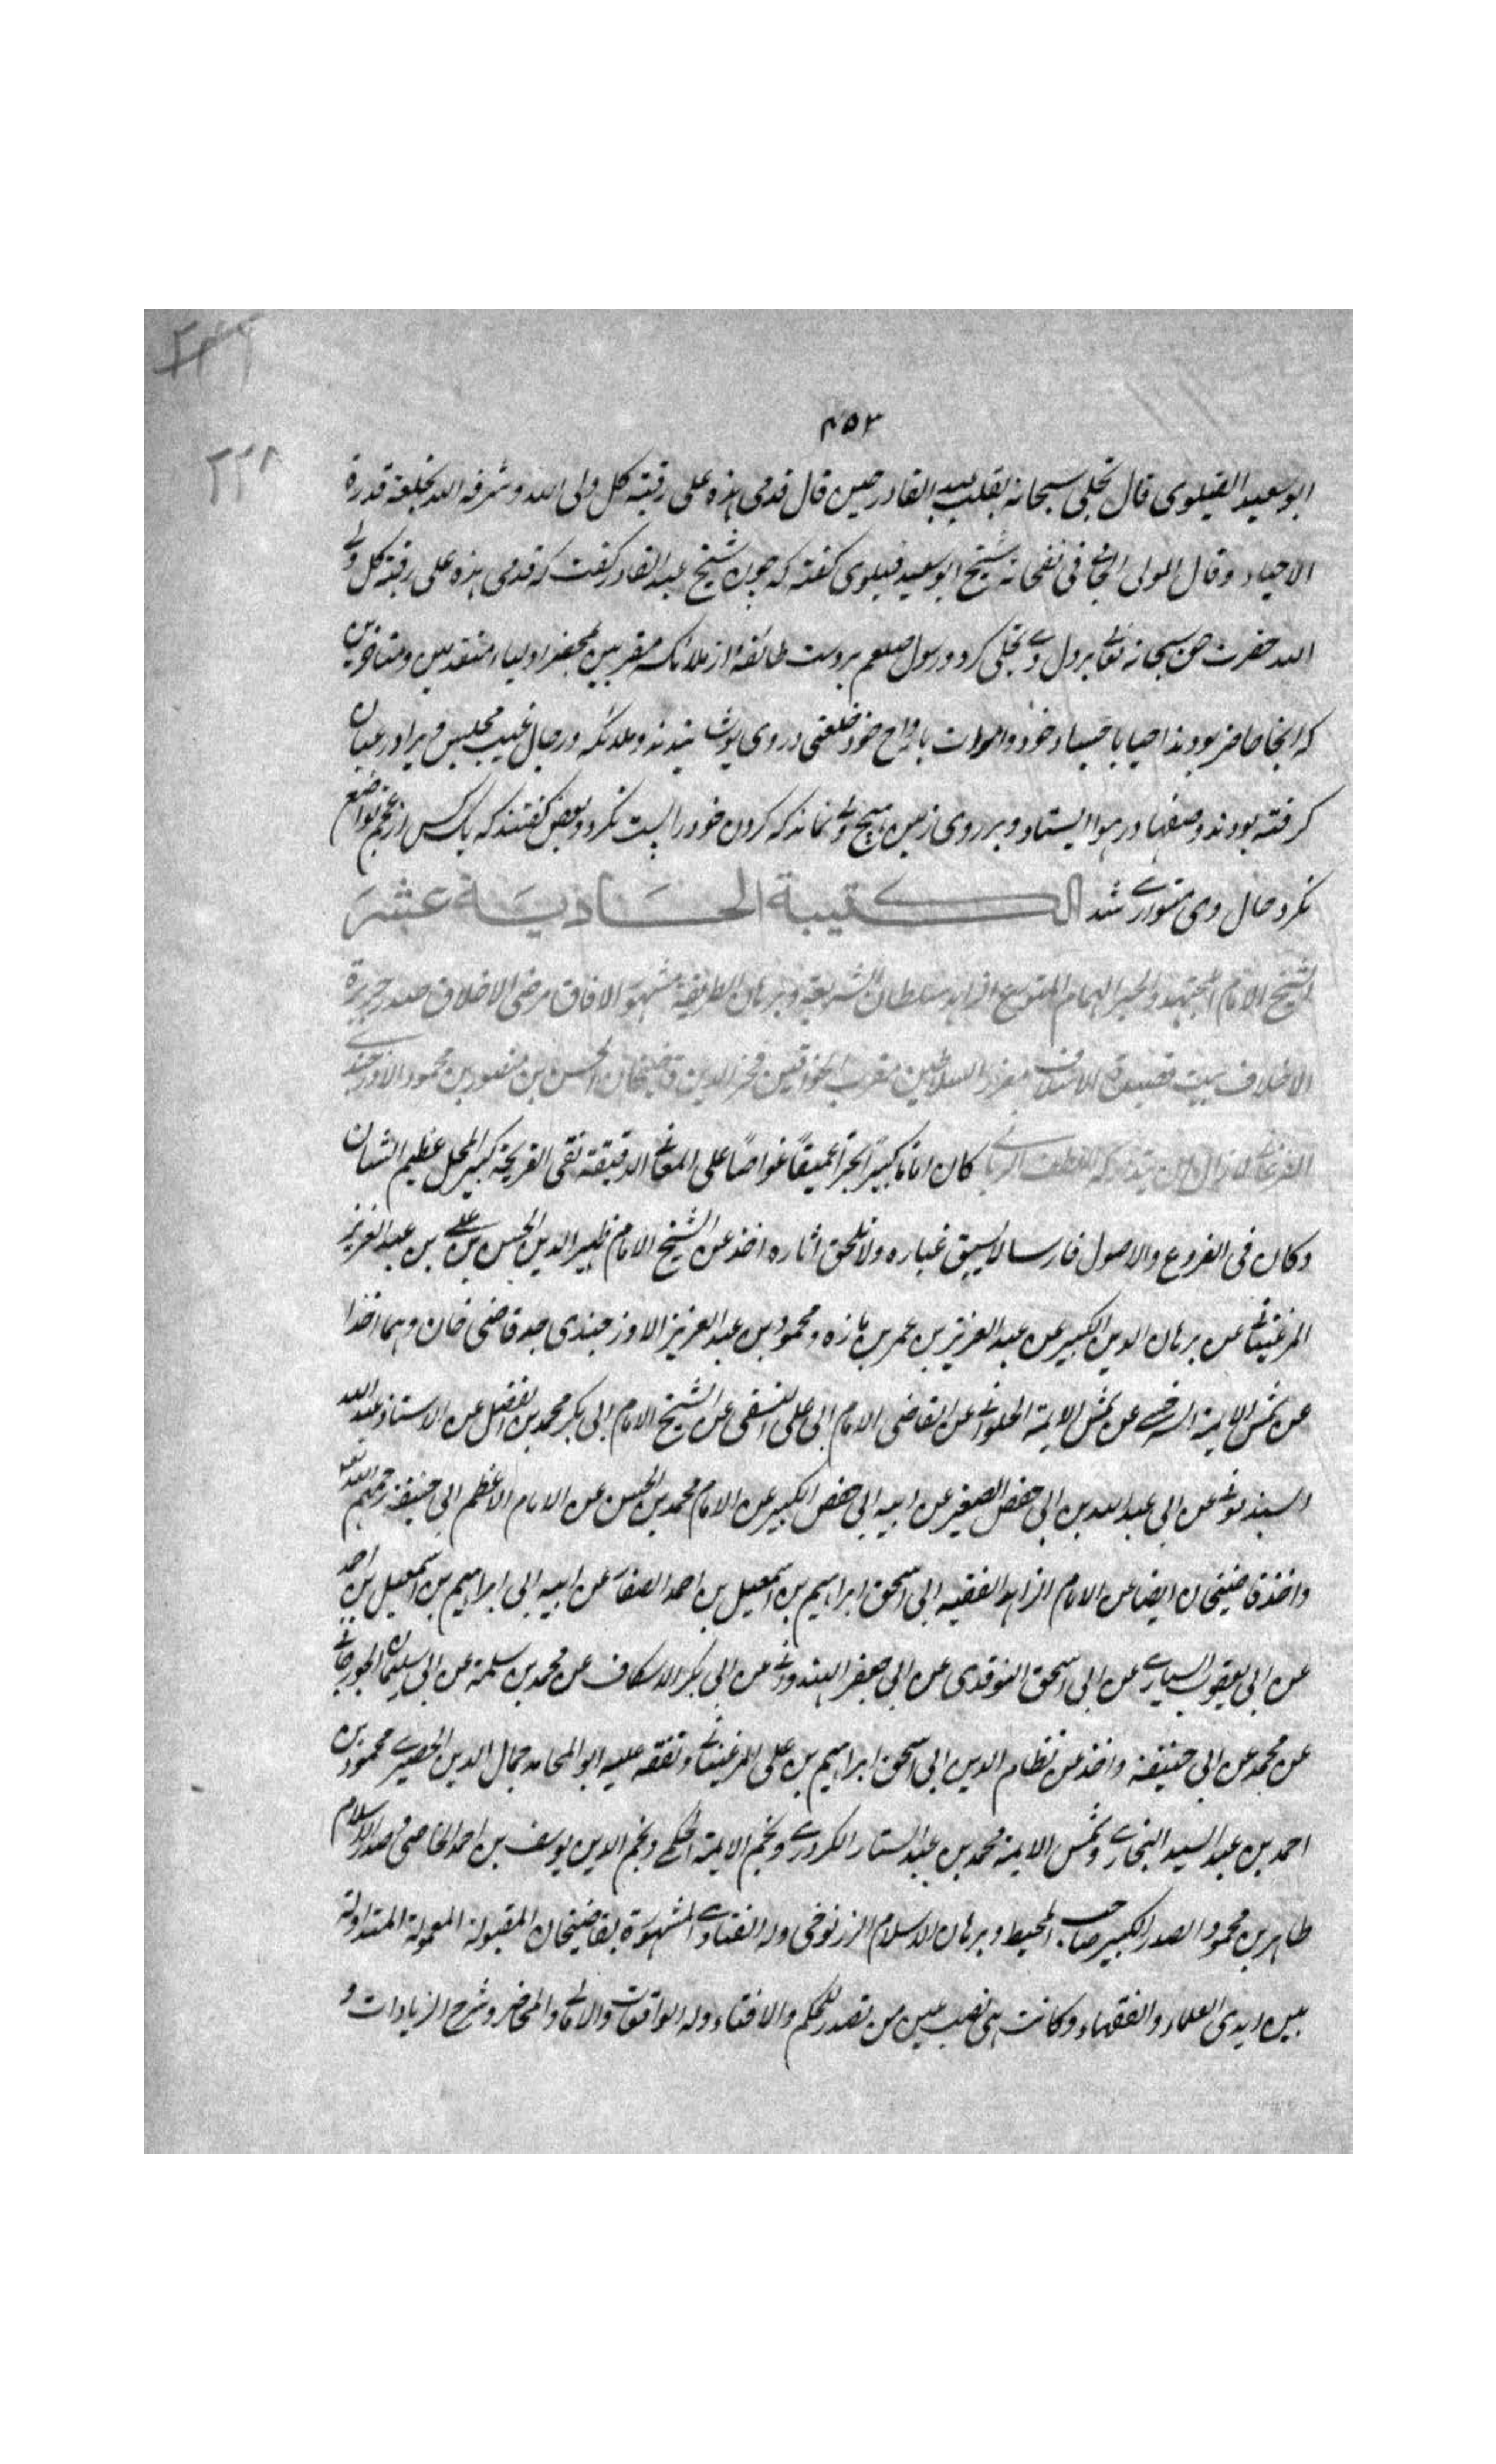 ٤٥٣
٢٢٨
ابو سعيد القيلوى قال تجلى سبحانه بقلب عبد القادر حين قال قدمى هذه على رقبة كل ولى الله وشرفه الله بخلعة قدرة
الاحياء وقال المولى الجامى فى نفحاته شيخ ابو سعيد قيلوى كفته كه چون شيخ عبد القادر كفت كه قدمى هذه على رقبة كل ولى
الله حضرت حق سبحانه تعالى بر دل وى تجلى كرد ورسول صلعم بر دست طائفه از ملائكه مقربين بمحضر اولياء متقدمين ومتاخرين
كه انجا حاضر بودند احيا با جساد خود واموات بارواح خود خلعتى در وى پوشانيدند وملائكه ورجال غيب مجلس ويرا در ميان
كرفته بودند وصفها در هوا ايستاده وبر روى زمين هيچ ولى نماند كه كردن خود را پست نكرد وبعض كفتند كه يك كس از عجم تواضع
نكرد حال وى متوارى شد الكتيبة الحادية عشر
الشيخ الامام المجتهد والحبر الهمام المتورع الزاهد سلطان الشريعة وبرهان الطريقة مشهور الافاق مرضى الاخلاق صدر جريدة
الاخلاف بيت قصيدة الاسلاف معزز السلاطين مقرب الخواقين فخر الدين قاضيخان الحسن بن منصور بن محمود الاوزجندى
الفرغانى لا زال يتداركه اللطف الربانى كان اماما كبيرا بحرا عميقا غواصا على المعانى الدقيقة نقى القريحة كبير المحل عظيم الشان
وكان فى الفروع والاصول فارسا لا يسبق غباره ولا تلحق اثاره اخذ عن الشيخ الامام ظهير الدين الحسن بن على بن عبد العزيز
المرغينانى عن برهان الدين الكبير عن عبد العزيز بن عمر بن مازه ومحمود بن عبد العزيز الاوزجندى جد قاضى خان وهما اخذا
عن شمس الايمة السرخسى عن شمس الايمة الحلوانى عن القاضى الامام ابى على النسفى عن الشيخ الامام ابى بكر محمد بن الفضل عن الاستاذ عبد الله
السبذمونى عن ابى عبد الله بن ابى حفص الصغير عن ابيه ابى حفص الكبير عن الامام محمد بن الحسن عن الامام الاعظم ابى حنيفة رحمهم الله تعالى
واخذ قاضيخان ايضا عن الامام الزاهد الفقيه ابى اسحق ابراهيم بن اسمعيل بن احمد الصفار عن ابيه ابى ابراهيم بن اسمعيل بن احمد
عن ابى يعقوب السيارى عن ابى اسحق النوقدى عن ابى جعفر الهندوانى عن ابى بكر الاسكاف عن محمد بن سلمة عن ابى سليمان الجوزجانى
عن محمد عن ابى حنيفة واخذ عن نظام الدين ابى اسحق ابراهيم بن على المرغينانى وتفقه عليه ابو المحامد جمال الدين الحصيرى محمود بن
احمد بن عبد السيد البخارى وشمس الايمة محمد بن عبد الستار الكردرى ونجم الايمة الحكمى ونجم الدين يوسف بن احمد الخاصى وصدر الاسلام
طاهر بن محمود الصدر الكبير صاحب المحيط وبرهان الاسلام الزرنوجى وله الفتاوى المشهورة بقاضيخان المقبولة المعمولة المتداولة
بين ايدى العلماء والفقهاء وكانت هى نصب عين من تصدر للحكم والافتاء وله الواقعات والامالى والمحاضر وشرح الزيادات و